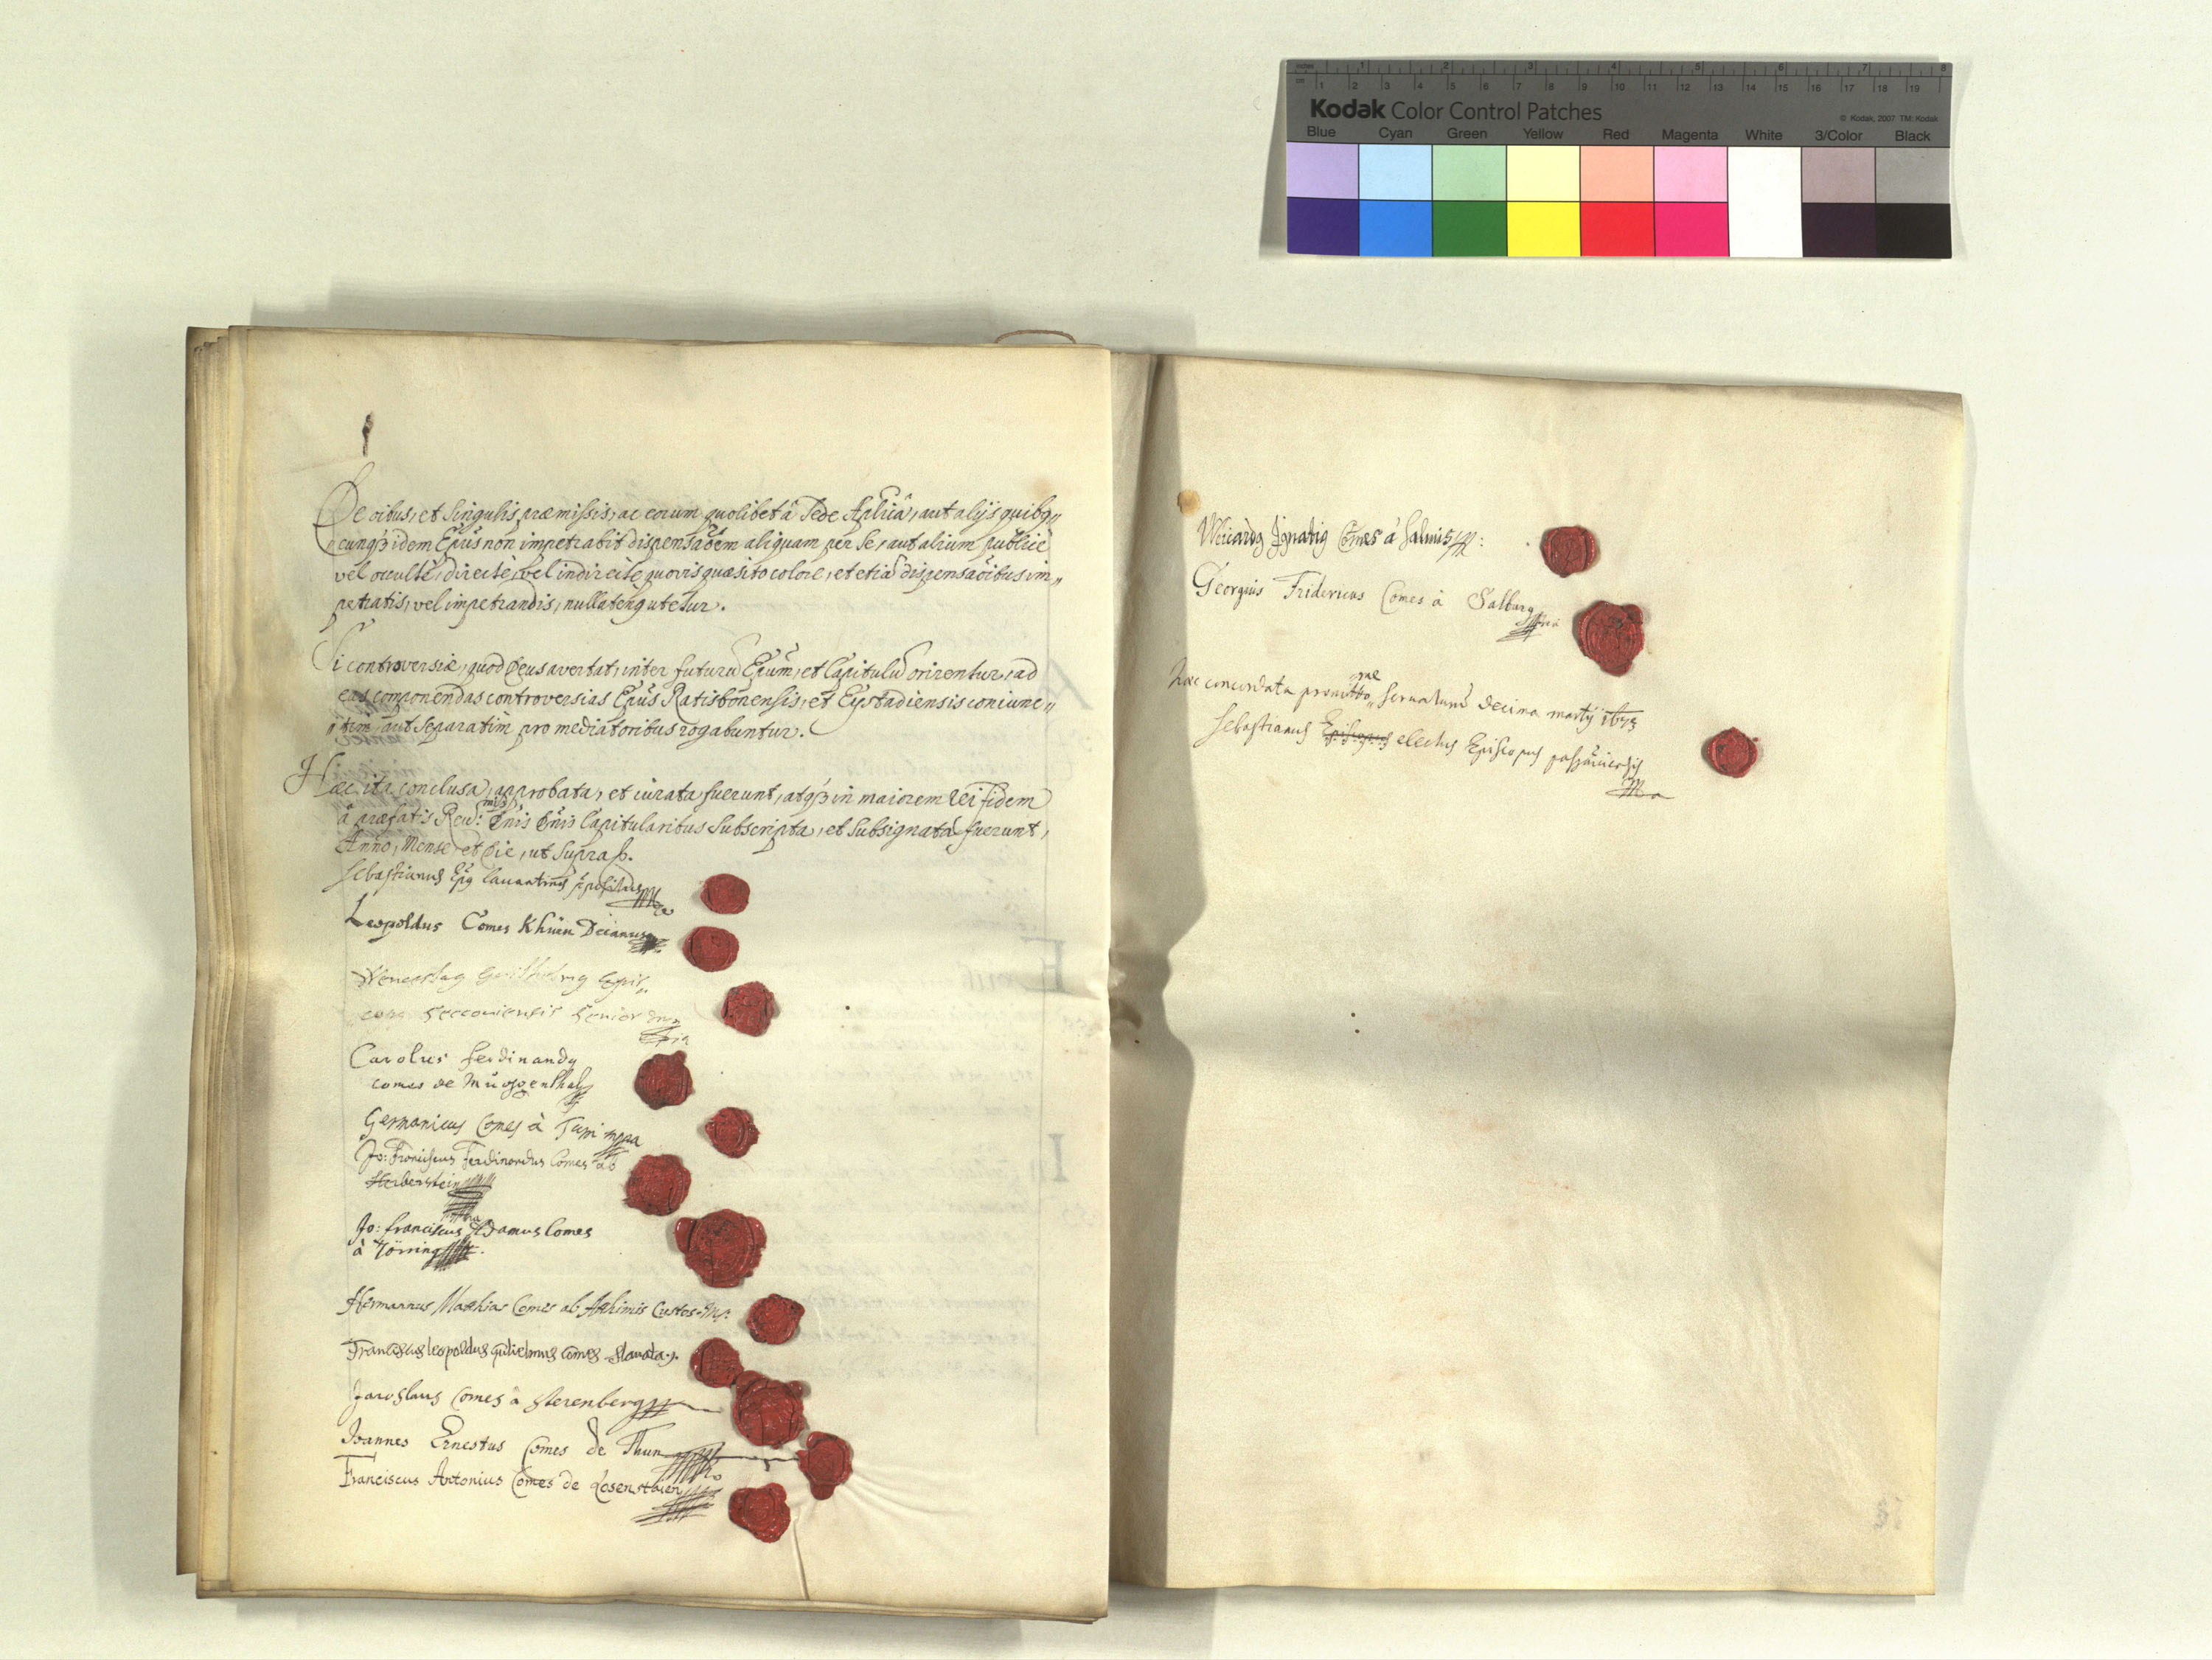 inches 1 2 3 4 5 6 7 8
cm 1 2 3 4 5 6 7 8 9 10 11 12 13 14 15 16 17 18 19
Kodak Color Control Patches
© Kodak, 2007 TM: Kodak
Blue Cyan Green Yellow Red Magenta White 3/Color Black
De oibus, et singulis præmissis, ac eorum quolibet â Sede Aplicâ, aut alijs quibq„
cunqȝ idem Epüs non impetrabit dispensaõem aliquam per se, aut alium publicè
vel occultè, directè, vel indirectè quovis quæsito colore, et etiã dispensaõibus im„
petratis, vel impetrandis, nullatenq utetur.
Si controversiæ, quod Deus avertat, inter futurũ Epum, et Capitulũ orirentur, ad
eas componendas controversias Epüs Ratisbonensis, et Eystadiensis coniunc„
tim, aut separatim pro mediatoribus rogabuntur.
Hæc ita conclusa, approbata, et iurata fuerunt, atqȝ in maiorem rei fidem
â præfatis Revd: mis Dnis Dnis Capitularibus subscripta, et subsignata fuerunt,
Anno, Mense et Die, ut supra ß.
Sebastianus Epq Lavantinus
Leopoldus Comes Khüen Decanus
Wenceslaq Epis„
Seccoviensis Senior
Carolus Ferdinandq
comes de Muggenthal
Germanicus Comes à Turri mppa
Jo: Franciscus Ferdinandus Comes ab
Herberstein
Jo: franciscus Adamus Comes
à Törring
Hermannus Mathias Comes ab Athimis Custos
Franciscus leopoldus gulielmus comes Slavata
Jaroslaus Comes à Sterenberg
Joannes Ernestus Comes de Thun
Franciscus Antonius Comes de Losenstain
Wicardq Ignatiq Comes â Salmis
Georgius Fridericus Comes à Salburg
Hæc concordata promitto servaturũ decima martij 1673
Sebastianus Episcopus electus Episcopus passaviensis